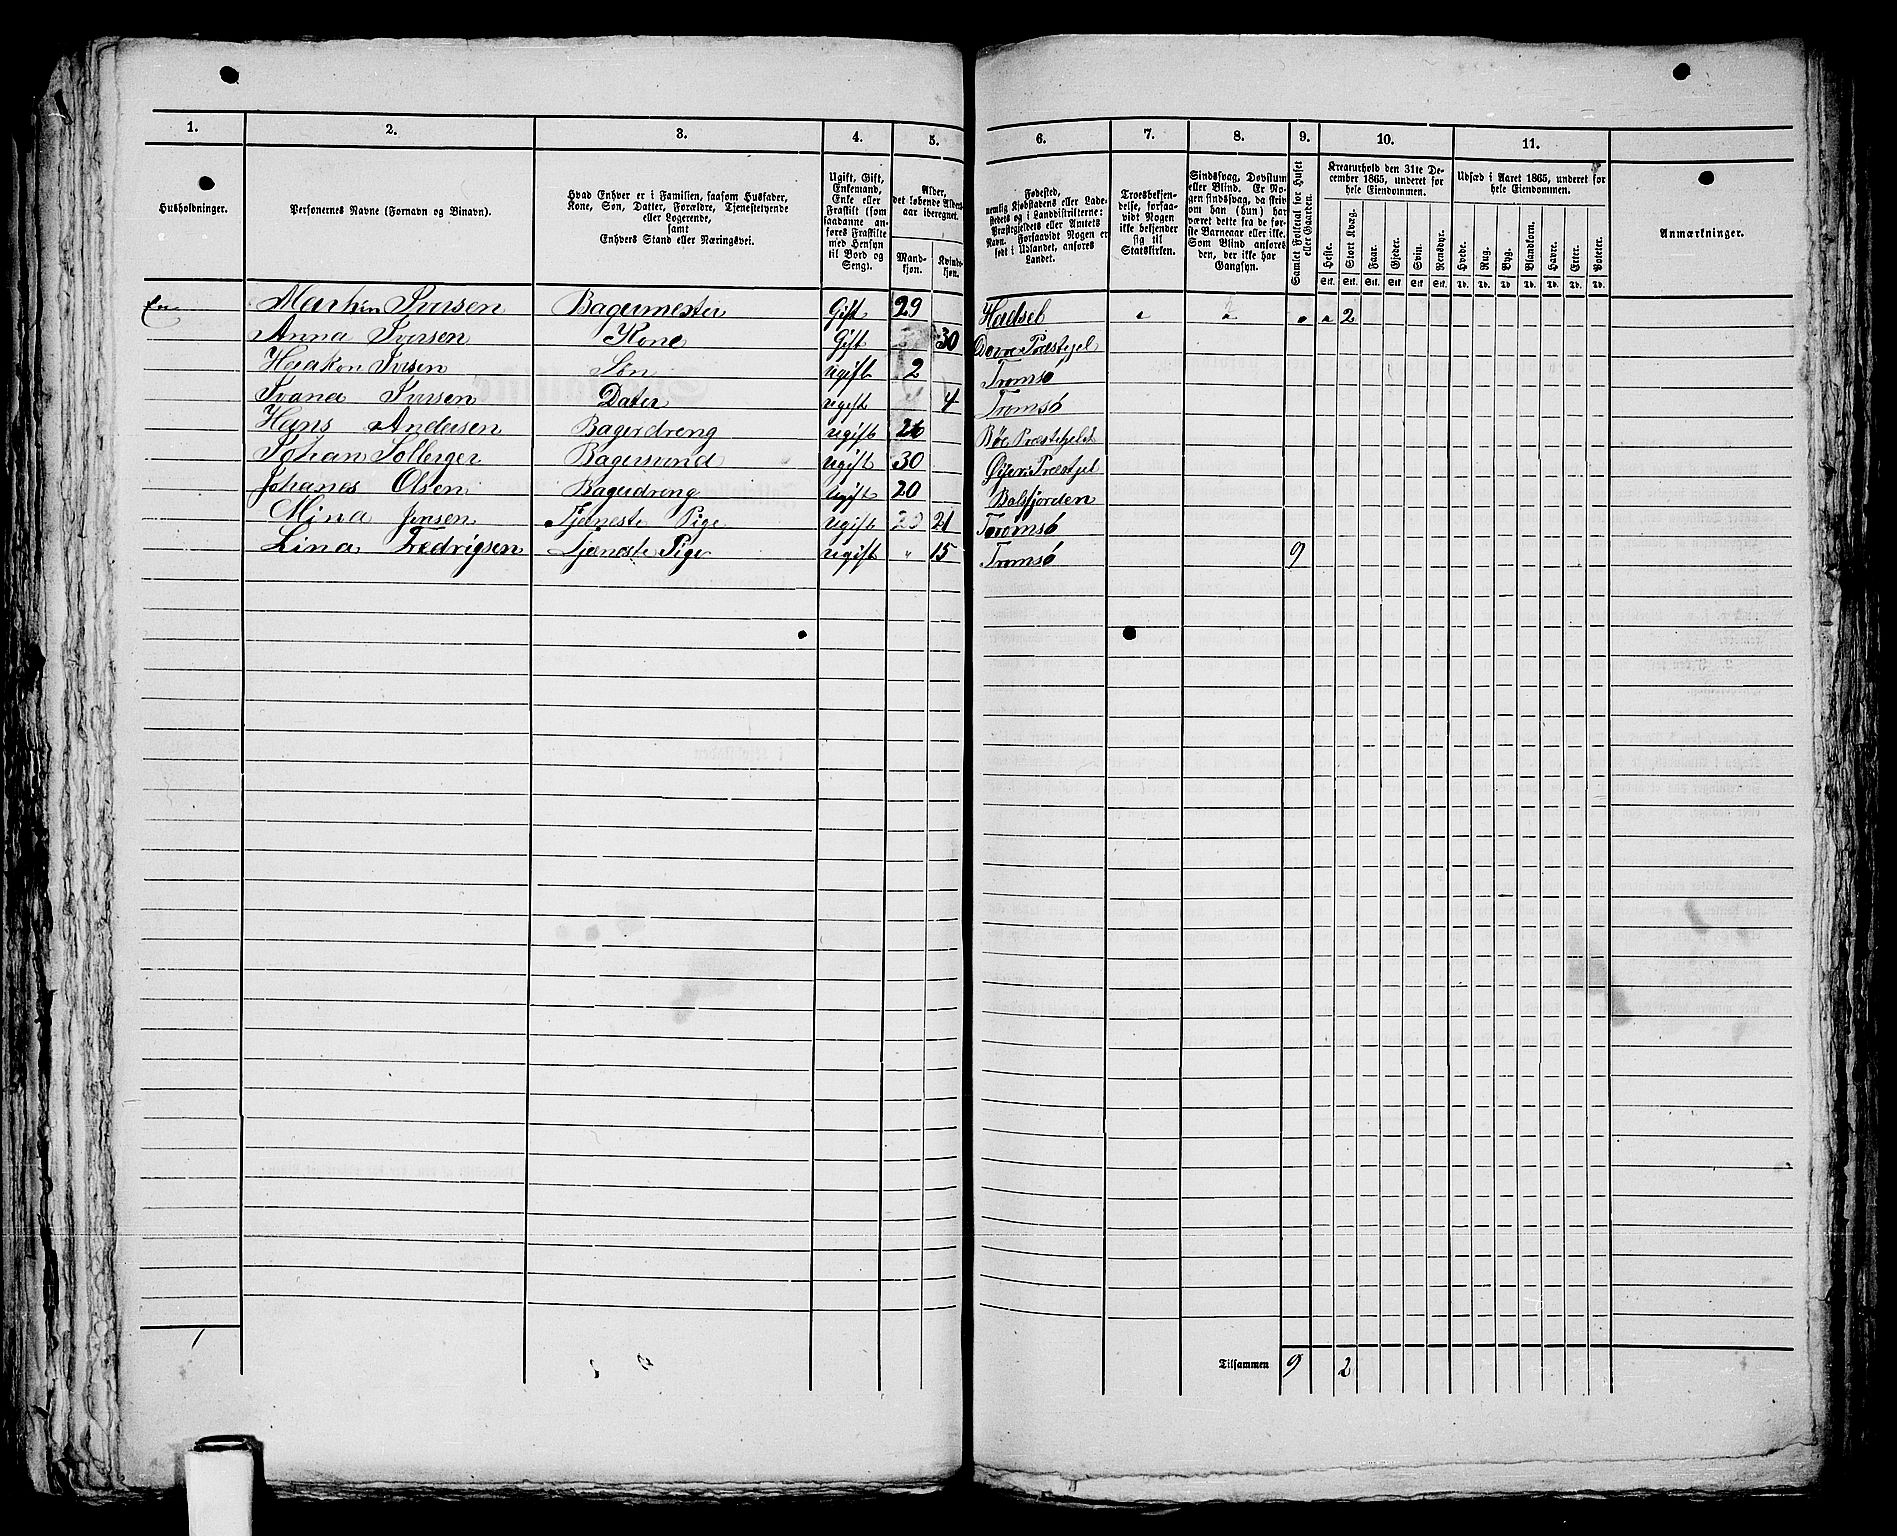 1. 2. 3. 4. 5. 6. 7. 8. 9. 10. 11.
Husholdninger.
Personernes Navne (Fornavn og Binavn).
Hvad Enhver er i Familien, saasom Husfader,
Kone, Søn, Datter, Forældre, Tjenestetyende
eller Logerende,
samt
Enhvers Stand eller Næringsvei.
Ugift, Gift,
Enkemand,
Enke eller
Fraskilt (som
saadanne an-
føres Fraskilte
med Hensyn
til Bord og
Seng).
Alder,
det løbende Alders-
aar iberegnet.
Mand-
kjøn.
Kvind-
kjøn.
Fødested,
nemlig Kjøbstadens eller Lade-
stedets og i Landdistrikterne:
Præstegjeldets eller Amtets
Navn. Forsaavidt Nogen er
født i Udlandet, anføres
Landet.
Troesbekjen-
delse, forsaa-
vidt Nogen
ikke bekjender
sig til
Statskirken.
Sindssvag, Døvstum
eller Blind. Er No-
gen sindssvag, da skriv
om han (hun) har
været dette fra de før-
ste Barneaar eller ikke.
Som Blind anføres
den, der ikke har
Gangsyn.
Samlet Folketal for Huset
eller Gaarden.
Kreaturhold den 31te De-
cember 1865, underet for
hele Eiendommen.
Heste. Stort Kvæg. Faar. Gjeder. Svin. Rensdyr.
Stk. Stk. Stk. Stk. Stk. Stk.
Udsæd i Aaret 1865, underet for
hele Eiendommen.
Hvede. Rug. Byg. Blandkorn. Havre. Erter. Poteter.
Td. Td. Td. Td. Td. Td. Td.
Anmærkninger.
En Martin Iversen Bagermester Gift 29 Hadsel " " " " 2
Anna Iversen Kone Gift 30 Dovre Præstegjel
Haakon Iversen Søn ugift 2 Tromsø
Ivana Iversen Dater ugift 4 Tromsø
Hans Andersen Bagerdreng ugift Bøe Præstegjeld
Johan Solberger Bagersvend ugift 30 Øyer Præstjel
Johanes Olsen Bagerdreng Ugift 20 Balsfjorden
Mina Jensen Tjeneste Pige ugift 21 Tromsø
Lina Fredrigsen Tjeneste Pige ugift " 15 Tromsø 9
1
Tilsammen 9 2